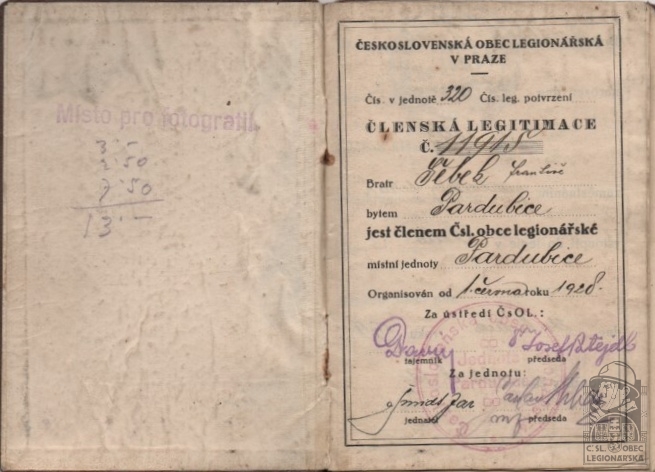 Místo pro fotografii.
3·-
2·50
7·50
13·-
ČESKOSLOVENSKÁ OBEC LEGIONÁŘSKÁ
V PRAZE
Čís. v jednotě 320 Čís. leg. potvrzení
ČLENSKÁ LEGITIMACE
Č. 11915
Bratr František
bytem Pardubice
jest členem Čsl. obce legionářské
místní jednoty Pardubice
Organisován od 1. června roku 1928.
Za ústředí ČsOL.:
Josef Patejdl
tajemník předseda
Za jednotu:
jednatel předseda
ČSL. OBEC
LEGIONÁŘSKÁ